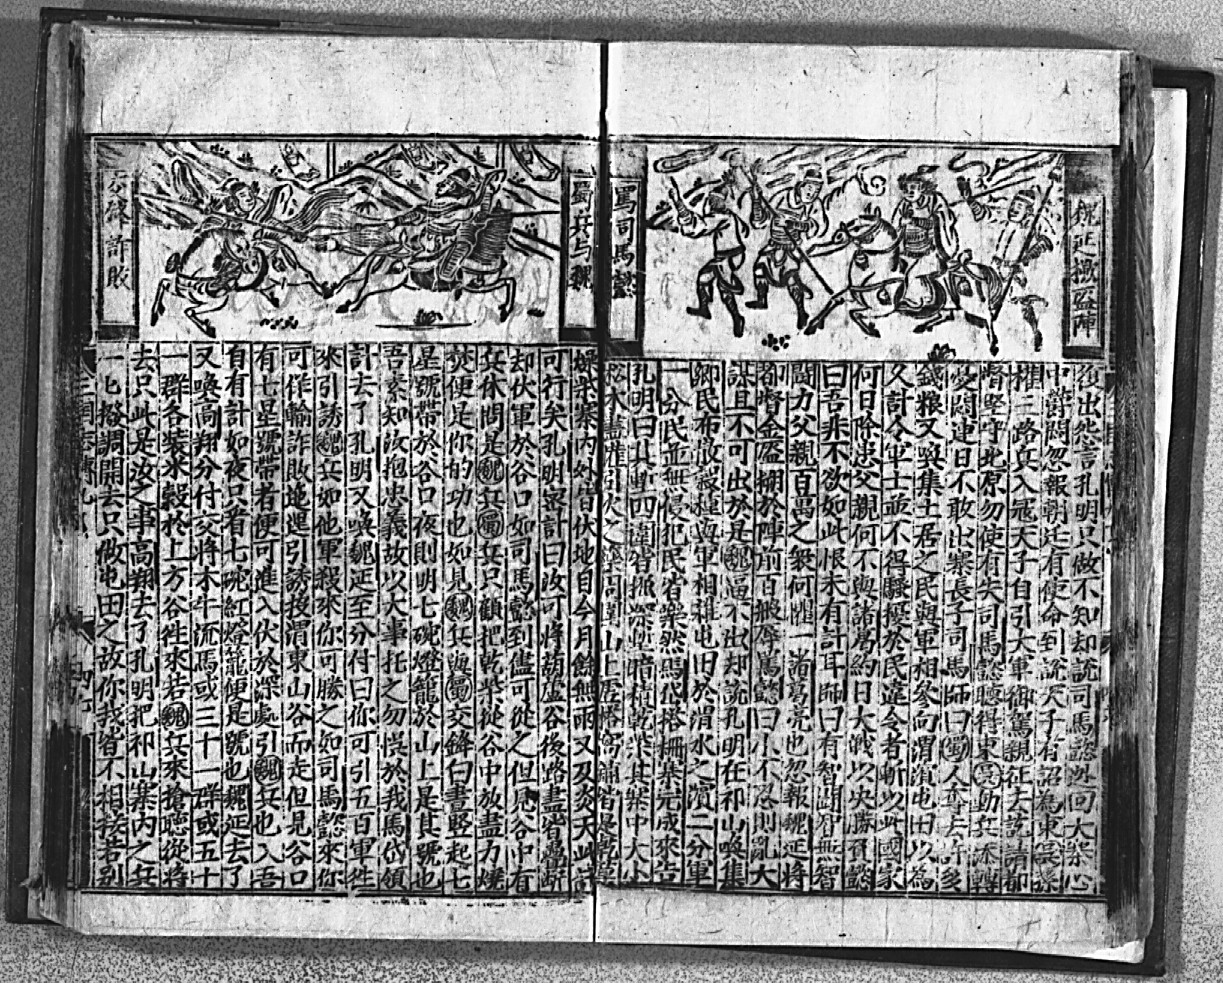 魏延搦盔陣
罵司馬懿
後出怨言孔明只做不知却說司馬懿回大寨心
中當悶忽報朝廷有使命到說天子有詔為東吳孫
權三路兵入寇天子自引大軍御駕親征去訖請都
督堅守北原勿使有失司馬懿聽得東吳動兵添轉
憂悶連日不敢出寨長子司馬師曰蜀人奪去許多
錢粮又喚集土居之民與軍相參向渭濱屯田以為
久計令軍士並不得騷擾於民違令者斬以此國家
何日除患父親何不與諸葛約日大戰以決勝負懿
曰吾非不欲如此恨未有計耳師曰有智鬪智無智
鬪力父親百萬之衆何懼一諸葛亮也忽報魏延將
都督金盔搠於陣前百般辱罵懿曰小不忍則亂大
謀且不可出於是魏逼不出却說孔明在祁山喚集
鄉民布散穀種與軍相雜屯田於渭水之濱二分軍
一分民並無侵犯民皆樂然馬岱搭柵寨完成來告
孔明曰其動四圍皆掘深塹暗積乾柴其寨中大小
松木盡堆引火之周圍山上
蜀兵与魏
交鋒詐敗
燥柴寨內外皆伏地自今月餘無雨又及炎天此計
可行矣孔明密計曰汝可將葫蘆谷後路盡皆壘斷
却伏軍於谷口如司馬懿到儘可從之但見谷中有
兵休問是魏兵蜀兵只顧把乾柴從谷中放盡力燒
焚便是你的功也如見魏兵與蜀交鋒曰晝竪起七
星號帶於谷口夜則明七碗燈籠於山上是其號也
吾素知汝抱忠義故以大事托之勿悞於我馬岱領
計去了孔明又喚魏延至分付曰你可引五百軍徃
來引誘魏兵如他軍殺來你可勝之如司馬懿來你
可作輸詐敗迤邐引誘投渭東山谷而走但見谷口
有七星號帶者便可進入伏於深處引魏兵也入吾
自有計如夜只看七碗紅燈籠便是號也魏延去了
又喚高翔分付父將木牛流馬或三十一群或五十
一群各裝米穀於上方谷徃來若魏兵來搶聽從將
去只此是汝之事高翔去了孔明把祁山寨內之兵
一匕撥調開去只做屯田之故你我皆不相接若別
三国志傳九